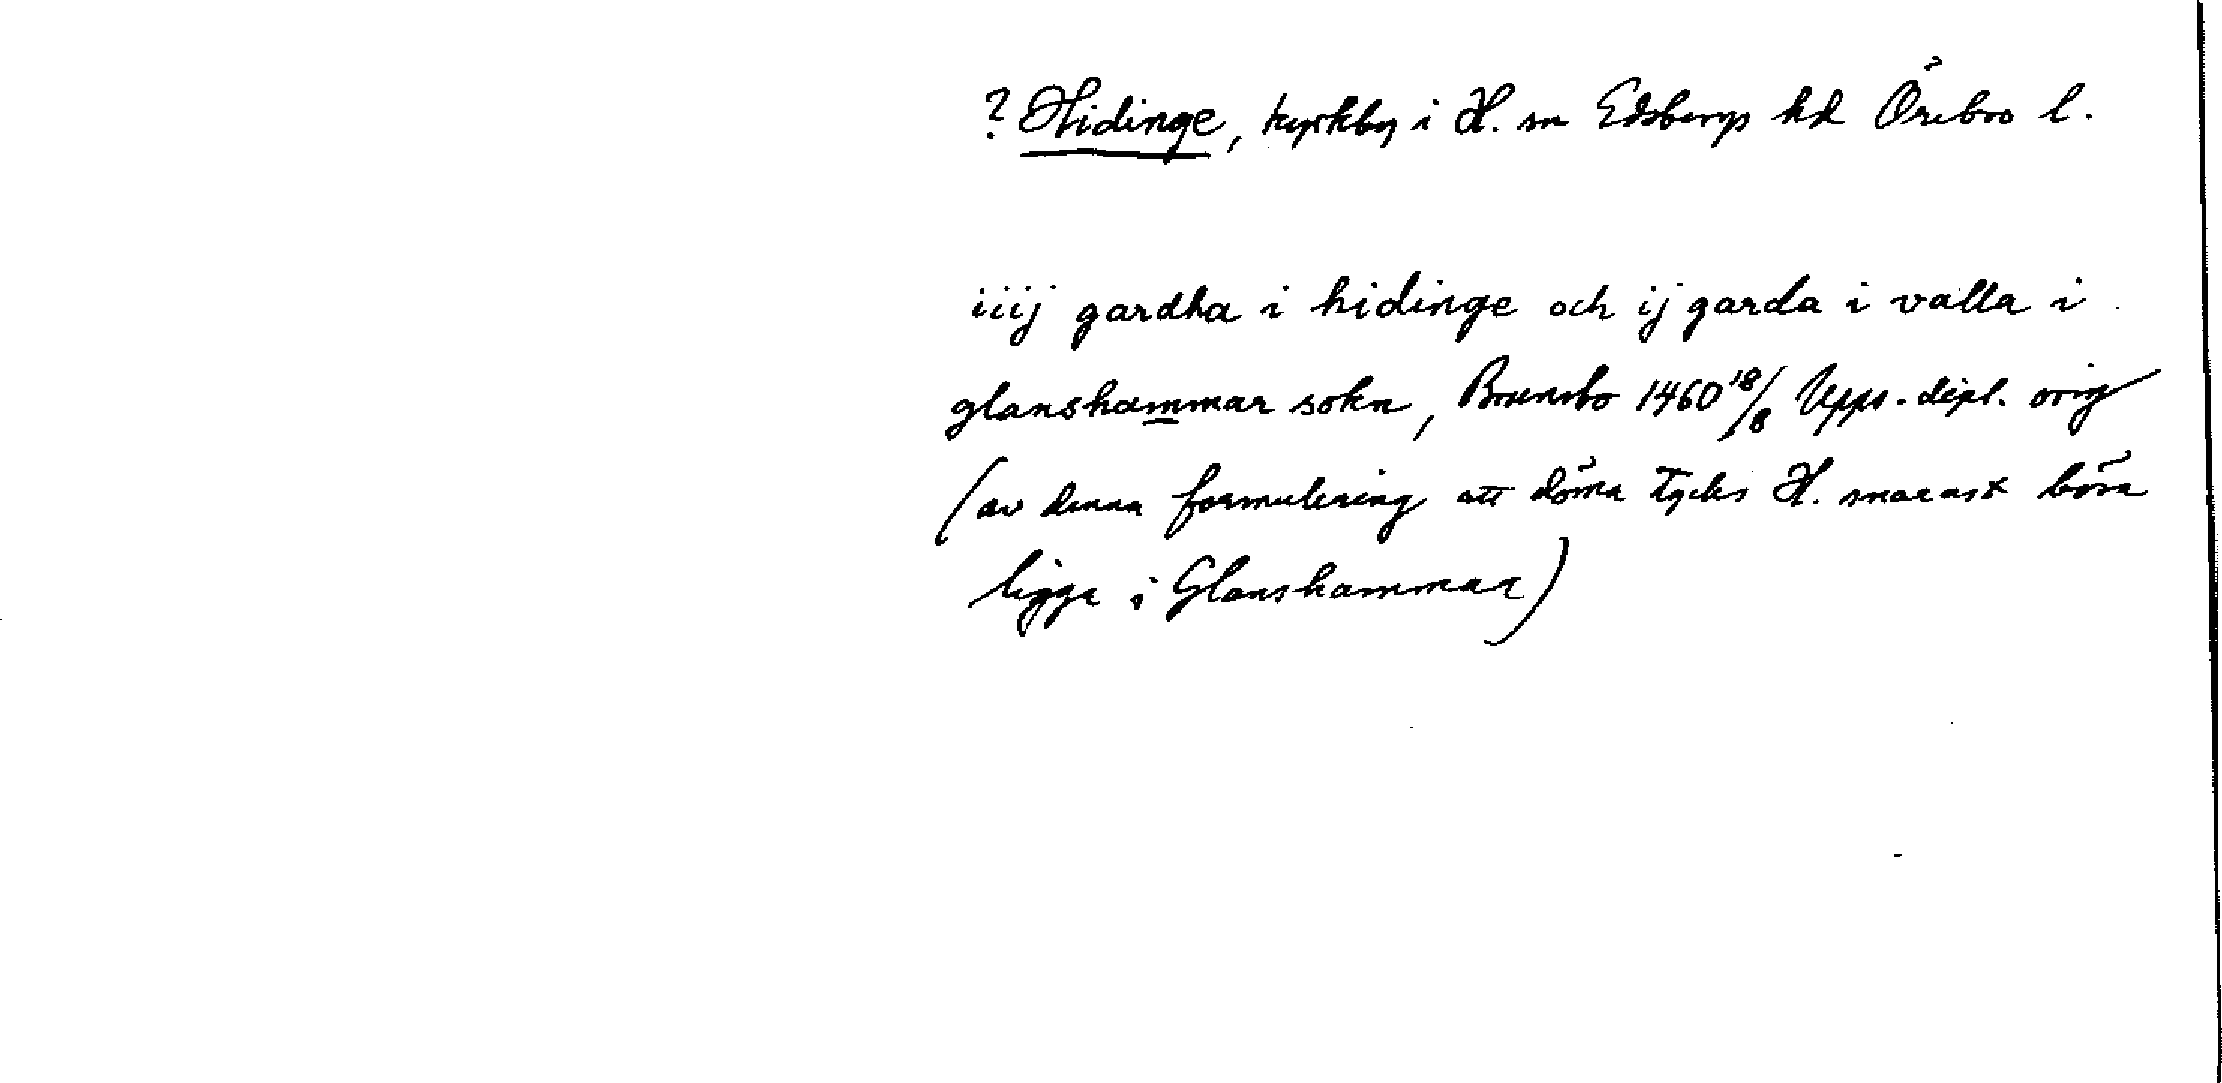 ? Hidinge, kyrkby i H. sn Edsbergs hd Örebro l.
iiij gardha i hidinge och ij garda i valla i
glanshammar sokn, 1460 18/8 Upps. dipl. orig
(av denna formulering att döma tycks H. snarast böra
ligga i Glanshammar)